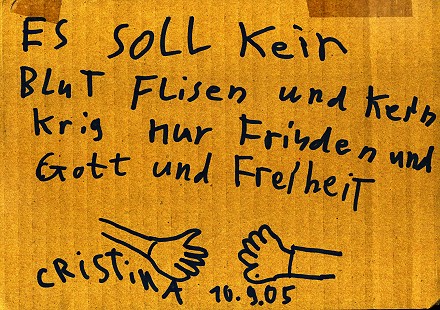 ES SOLL Kein
BluT Flisen und Kein
Krig nur Frinden und
Gott und Freiheit
CRistinA 10.9.05